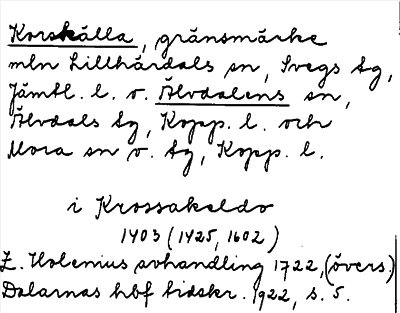 Korskälla, gränsmärke
mln Lillhärdals sn, Svegs tg,
Jämtl. l. o. Älvdalens sn,
Älvdals tg, Kopp. l. och
Mora sn o. tg, Kopp. l.
i Krossakeldo
1403 (1425, 1602)
E. Holenius avhandling 1722, (övers.)
Dalarnas hbf tidskr. 1922, s. 5.